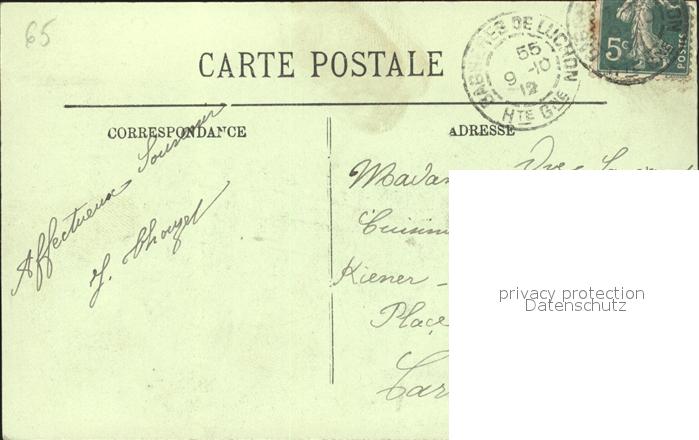 65
CARTE POSTALE
BAGNÈRES DE LUCHON
55
9-10
12
HTE GNE
5c
POSTES
CORRESPONDANCE
ADRESSE
Affectueux Souvenir
Madam
Cuisin
Kiener -
Place
Car
privacy protection
Datenschutz